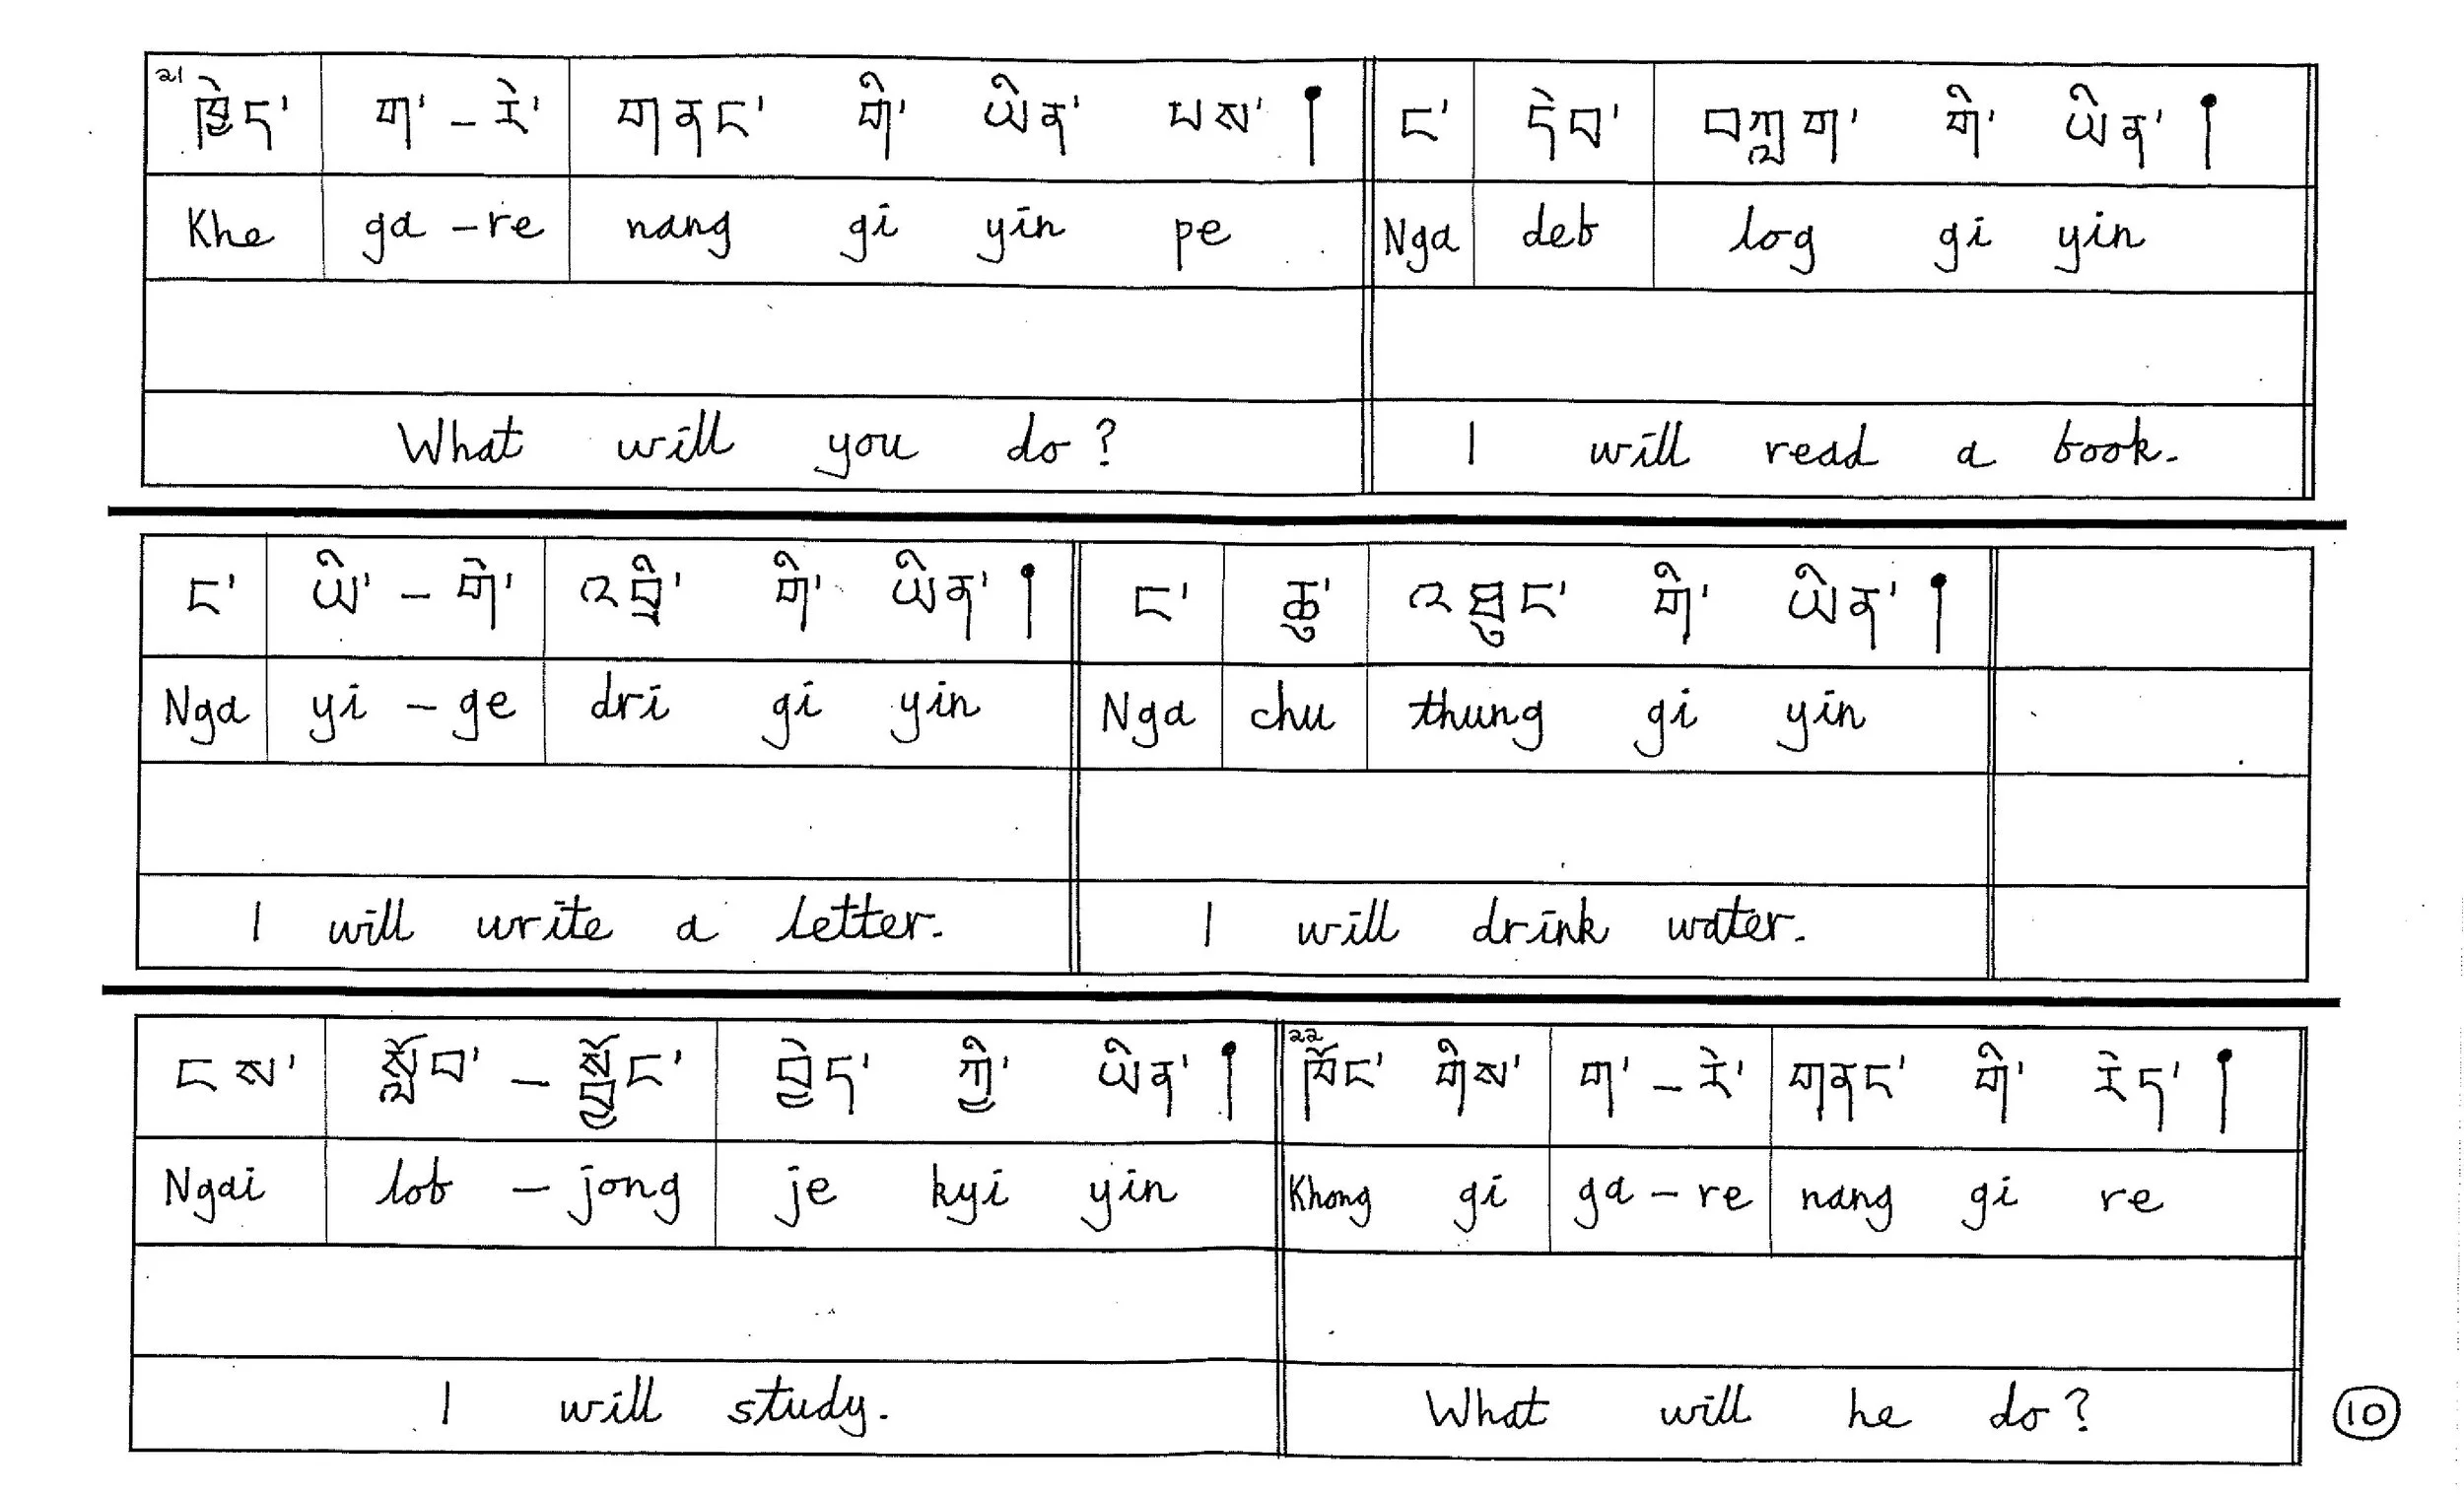 21 ཁྱེད་ ག་ - རེ་ གནང་ གི་ ཡིན་ པས། ང་ དེབ་ བཀླག་ གི་ ཡིན།
Khe ga - re nang gi yin pe Nga deb log gi yin
What will you do? I will read a book.
ང་ ཡི་ - གེ་ འབྲི་ གི་ ཡིན། ང་ ཆུ་ འཐུང་ གི་ ཡིན།
Nga yi - ge dri gi yin Nga chu thung gi yin
I will write a letter. I will drink water.
ངས་ སློབ་ - སྦྱོང་ བྱེད་ ཀྱི་ ཡིན། 22 ཁོང་ གིས་ ག་ - རེ་ གནང་ གི་ རེད།
Ngai lob - jong je kyi yin Khong gi ga - re nang gi re
I will study. What will he do?
10